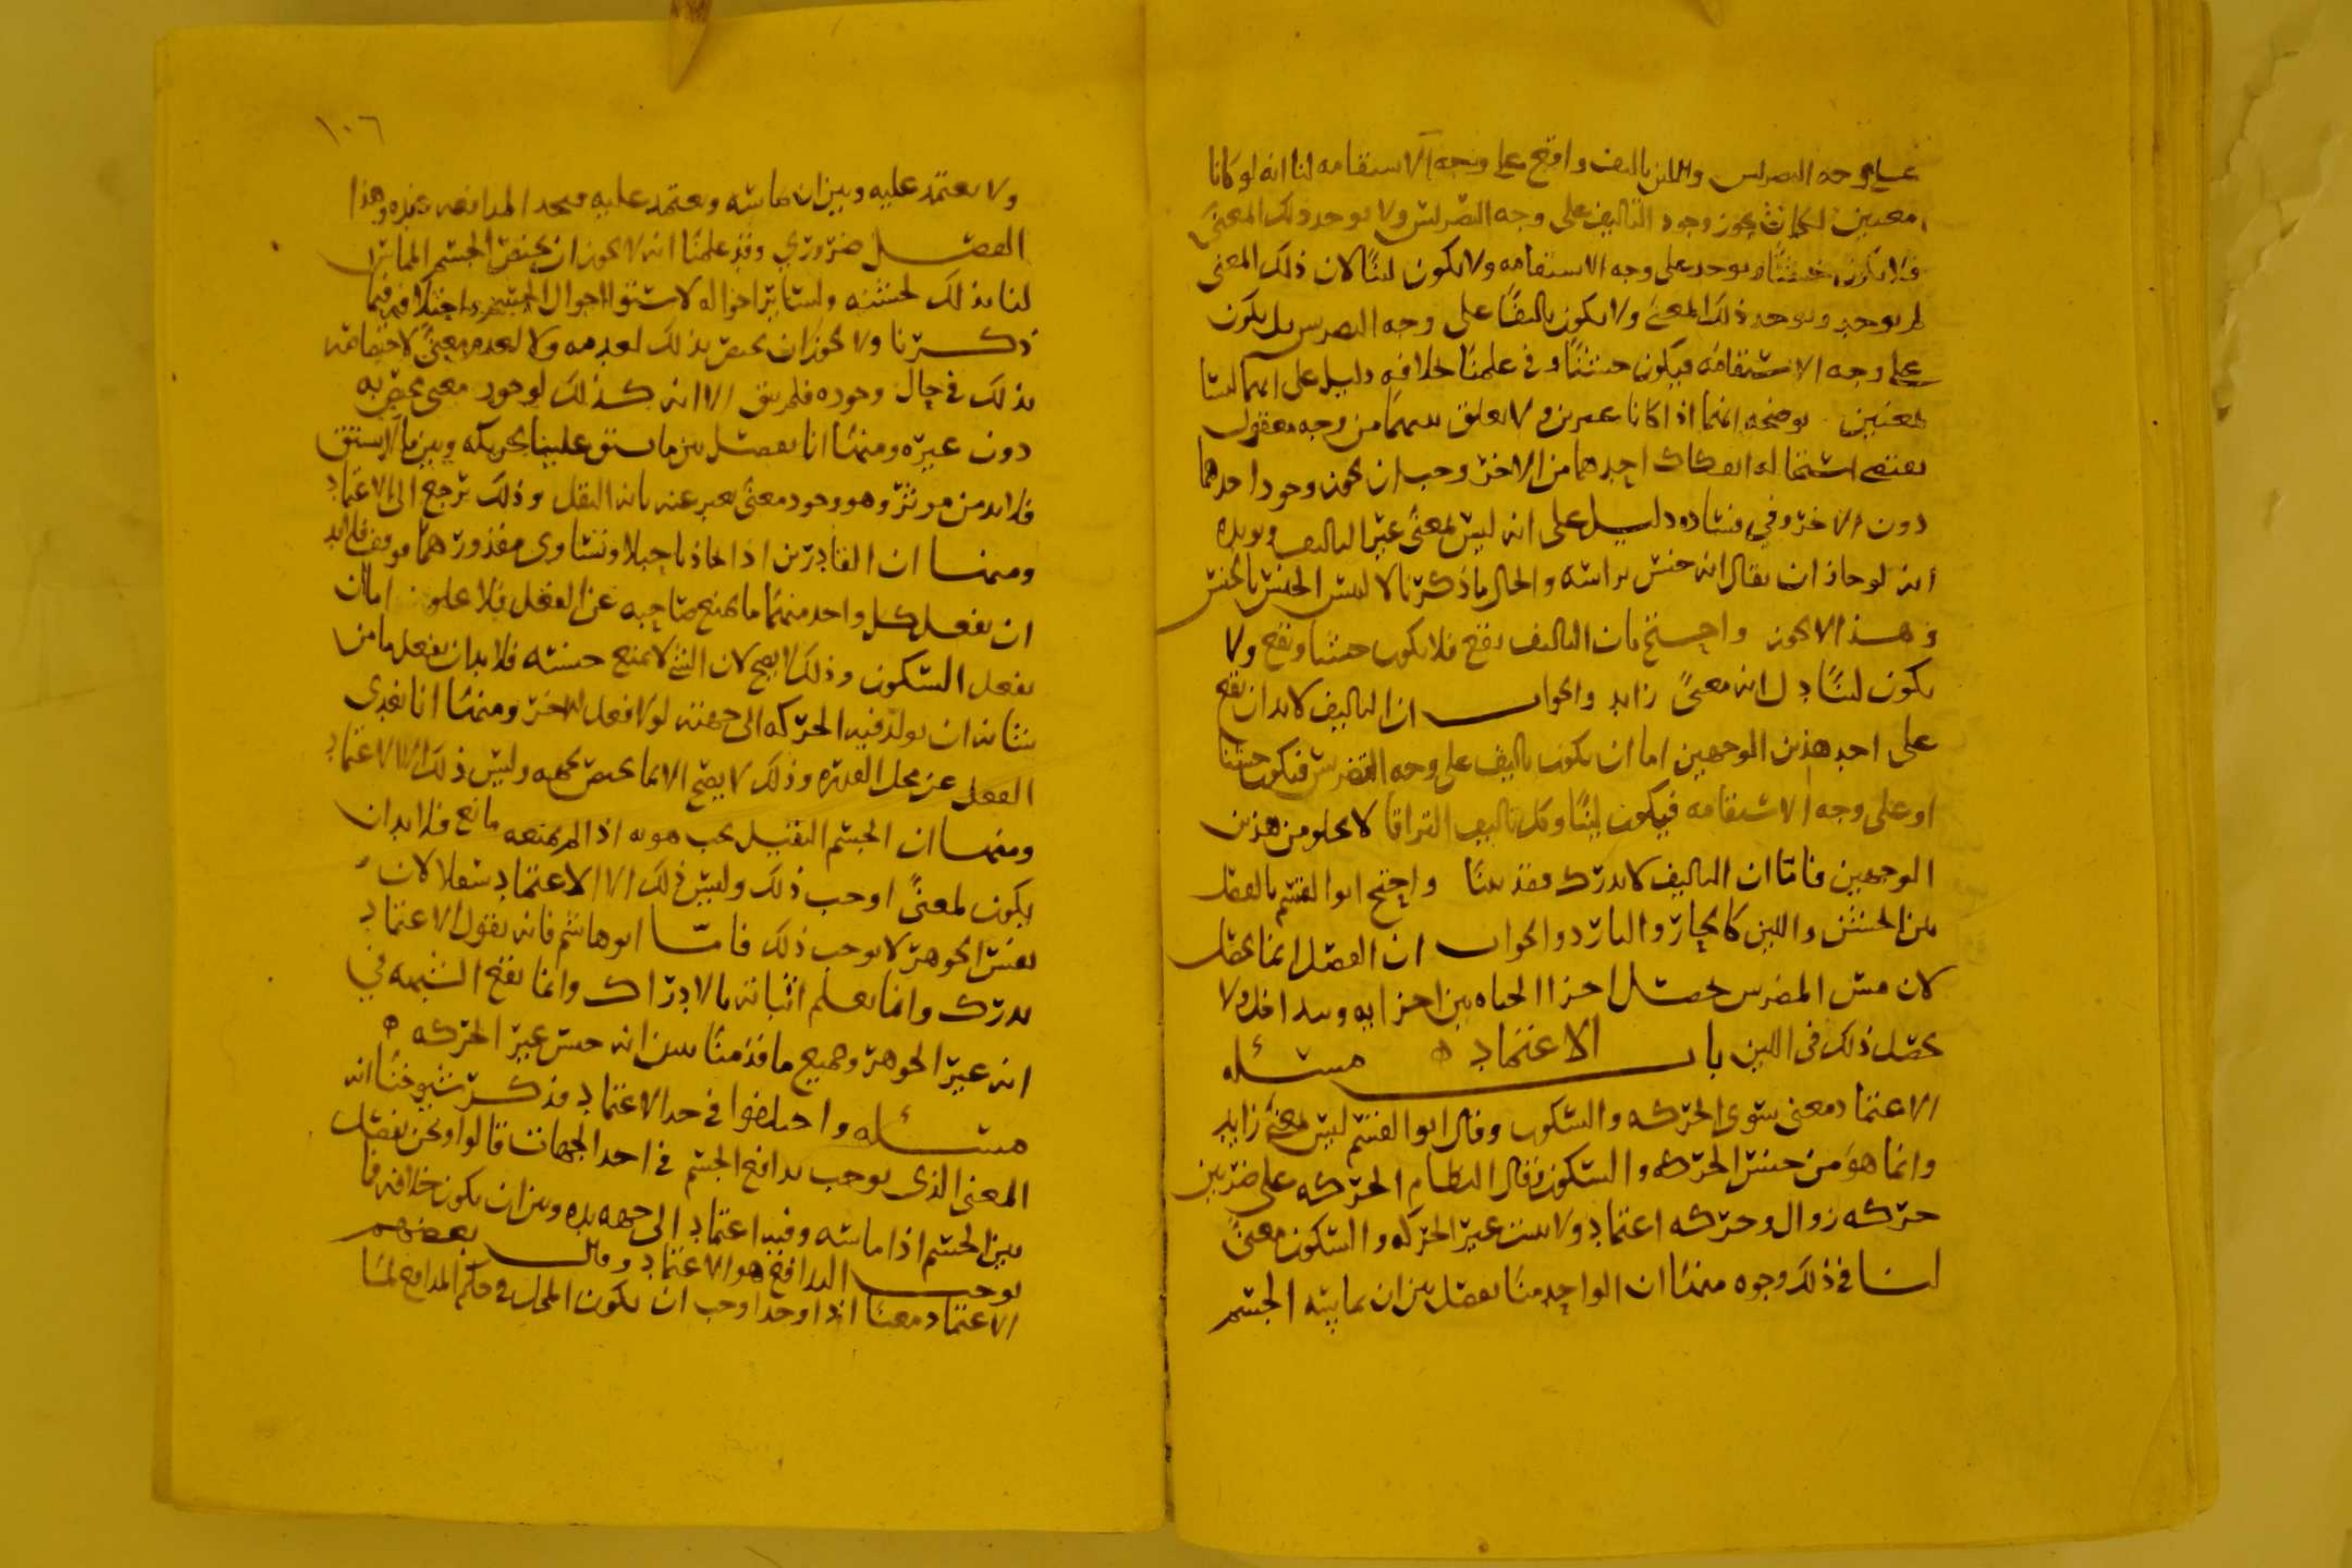 على وجه التضريس واللين تاليف واقع على وجه الاستقامه لنا انه لو كانا
معنيين لكان يجوز وجود التاليف على وجه التضريس ولا يوجد ذلك المعنى
فلا يكون خشنا ويوجد على وجه الاستقامه ولا يكون لينا لان ذلك المعنى
لم يوجد ويوجد ذلك المعنى ولا يكون تاليفا على وجه التضريس بل يكون
على وجه الاستقامه فيكون خشنا وفي علمنا خلافه دليل على انهما ليسا
لمعنيين يوضحه انهما اذا كانا غيرين ولا تعلق بينهما من وجه معقول
يقتضي استحاله انفكاك احدهما من الاخر وجب ان يجوز وجود احدهما
دون الاخر وفي فساده دليل على انه ليس لمعنى غير التاليف ويويده
انه لو جاز ان يقال انه جنس براسه والحال ما ذكرنا لالتبس الجنس بالجنس
وهذا لا يجوز واحتج بان التاليف يقع فلا يكون خشنا ويقع ولا
يكون لينا دل انه معنى زايد والجواب ان التاليف لا بد ان يقع
على احد هذين الوجهين اما ان يكون تاليف على وجه التضريس فيكون خشنا
او على وجه الاستقامه فيكون لينا وكل تاليف لا يخلو من هذين
الوجهين فاما ان التاليف لا يدرك فقد بينا واحتج ابو القسم بالفصل
بين الخشن واللين كالحار والبارد والجواب ان الفصل انما يحصل
لان مس المضرس يحصل اجزا الحياه بين اجزايه ويتداخل ولا
يحصل ذلك في اللين باب الاعتماد ه مسئله
الاعتماد معنى سوى الحركه والسكون وقال ابو القسم ليس لمعنى زايد
وانما هو من جنس الحركه والسكون وقال النظام الحركه على ضربين
حركه زوال وحركه اعتماد ولا يثبت غير الحركه والسكون معنى
لنا في ذلك وجوه منها ان الواحد منا يفصل بين ان يماسه الجسم
١٠٦
ولا يعتمد عليه وبين ان يماسه ويعتمد عليه فيجد المدافعه عنده وهذا
الفصل ضروري وقد علمنا انه لا يجوز ان يختص الجسم المماس
لنا بذلك لجنسه ولسائر احواله لاستوا احوال الجسم واختلافه فيما
ذكرنا ولا يجوز ان يختص بذلك لعدمه ولا لعدم معنى لاختصاصه
بذلك في حال وجوده فلم يبق الا انه كذلك لوجود معنى يختص به
دون غيره ومنها انا نفصل بين ما يشق علينا تحريكه وبين ما لا يشق
فلا بد من موثر وهو وجود معنى يعبر عنه بانه الثقل وذلك يرجع الى الاعتماد
ومنها ان القادرين اذا تجاذبا حبلا وتساوى مقدورهما فلا بد
ان يفعل كل واحد منهما ما يمنع صاحبه عن الفعل فلا يخلو اما ان
يفعل السكون وذلك لا يصح لان الشي لا يمنع جنسه فلا بد ان يفعل ما من
شانه ان يولد فيه الحركه الى جهته لولا فعل الاخر ومنها انا نعدى
الفعل عن محل القدره وذلك لا يصح الا بما يختص بجهه وليس ذلك الا الاعتماد
ومنها ان الجسم الثقيل يجب هويه اذا لم يمنعه مانع فلا بد ان
يكون لمعنى اوجب ذلك وليس ذلك الا الاعتماد سفلا لان
نفس الجوهر لا يوجب ذلك فاما ابو هاشم فانه يقول الاعتماد
يدرك وانما يعلم اثباته بالادراك وانما يقع الشبهه في
انه غير الجوهر وجميع ما قدمنا يبين انه جنس غير الحركه ه
مسئله واختلفوا في حد الاعتماد فذكر شيوخنا انه
المعنى الذي يوجب تدافع الجسم في احد الجهات قالوا ونحن نفصل
بين الجسم اذا ماسه وفيه اعتماد الى جهه يده وبين ان يكون خلافه فما
يوجب التدافع هو الاعتماد وقال بعضهم
الاعتماد معنى اذا وجد اوجب ان يكون المحل في حكم المدافع لما